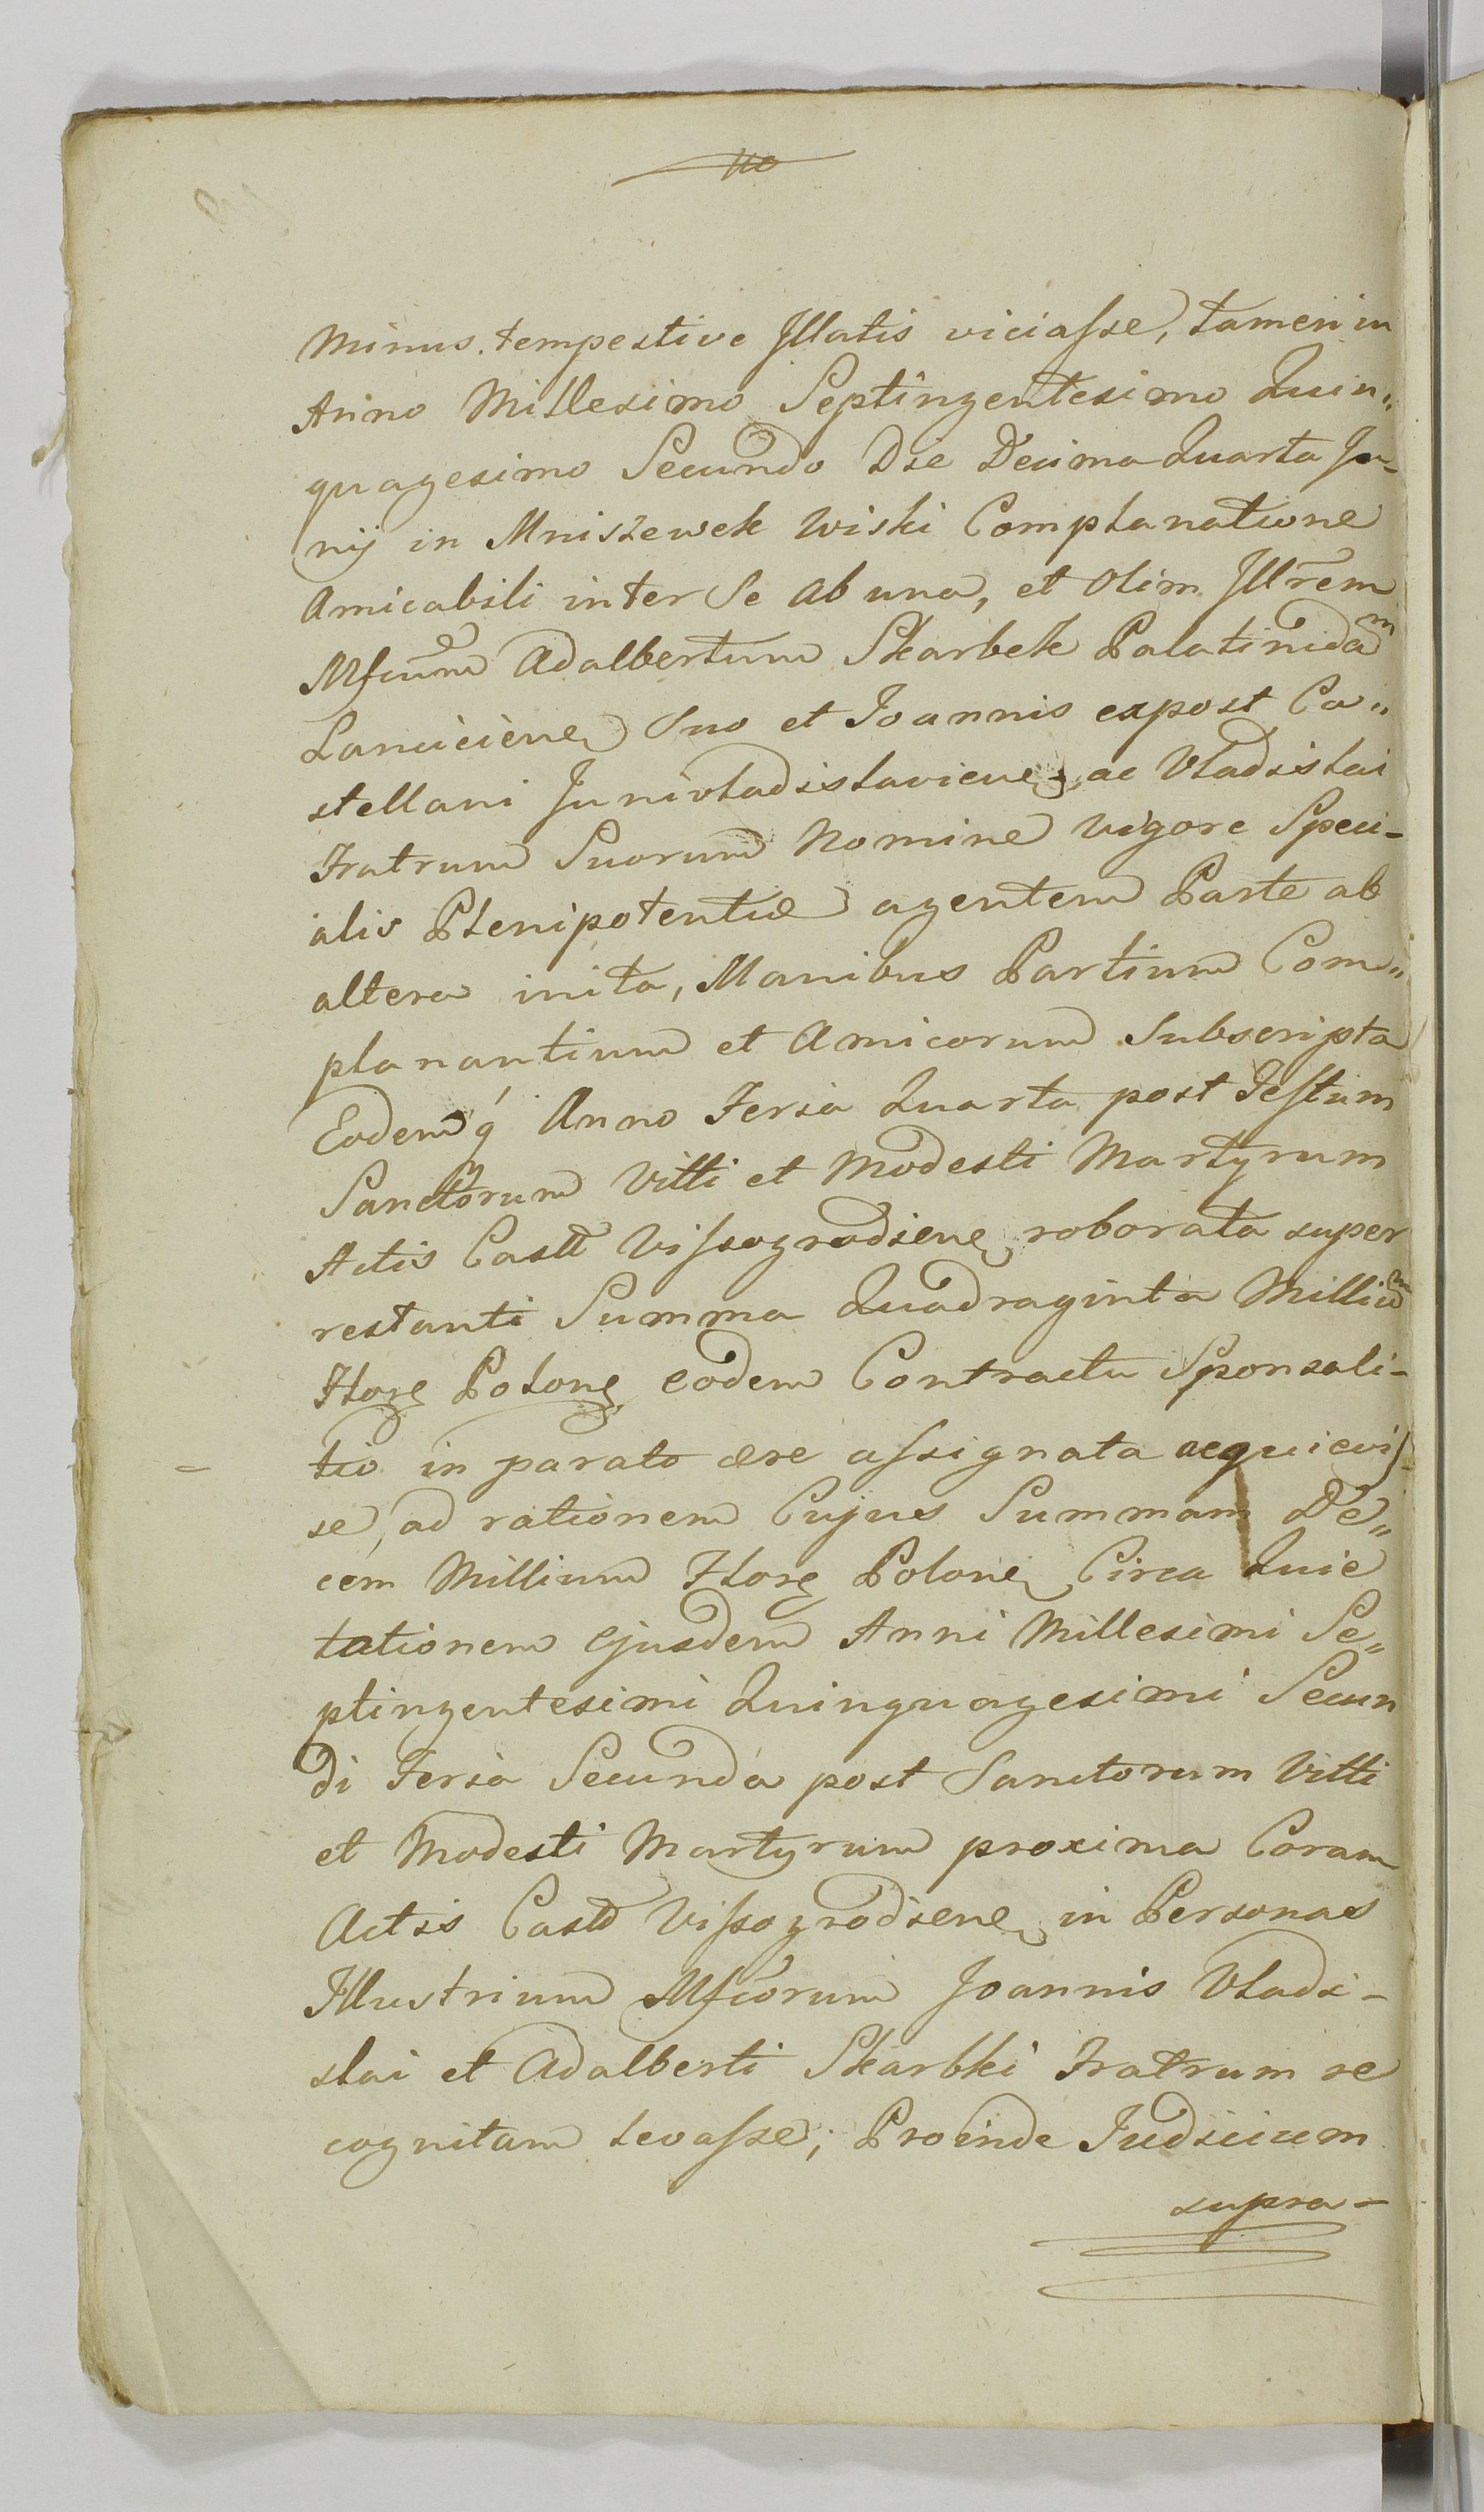 minus tempestive Illatis viciaſse, tamen in
Anno Millesimo Septingentesimo Quin„
quagesimo Secundo Die Decima Quarta Ju-
nij in Mniszewek Wiski Complanatione
Amicabili inter Se ab una, et olim Illrem
Mfcum Adalbertum Skarbek Palatinidam
Lancicien Suo et Joannis expost Ca„
stellani Junivladislavien, ac Vladislai
Fratrum Suorum Nomine vigore Speci-
alis Plenipotentiæ agentem Parte ab
altera inita, Manibus Partium Com„
planantium et Amicorum Subscripta
Eodemq́ Anno Feria Quarta post Feſtum
Sanctorum Vitti et Modesti Martyrum
Actis Castr Viſsogrodien roborata super
restanti Summa Quadraginta Millium
Flor Polon eodem Contractu Sponsali-
tio in parato ære aſsignata acquieviſ-
se, ad rationem Cujus Summam De„
cem Millium Flor Polon Circa Quie
tationem ejusdem Anni Millesimi Se„
ptingentesimi Quinquagesimi Secun
di Feria Secunda post Sanctorum Vitti
et Modesti Martyrum proxima Coram
Actis Castr Viſsogrodien in Personas
Illustrium Mfcorum Joannis Vladi-
slai et Adalberti Skarbki Fratrum re
cognitam levaſse; Proinde Judicium
supra-